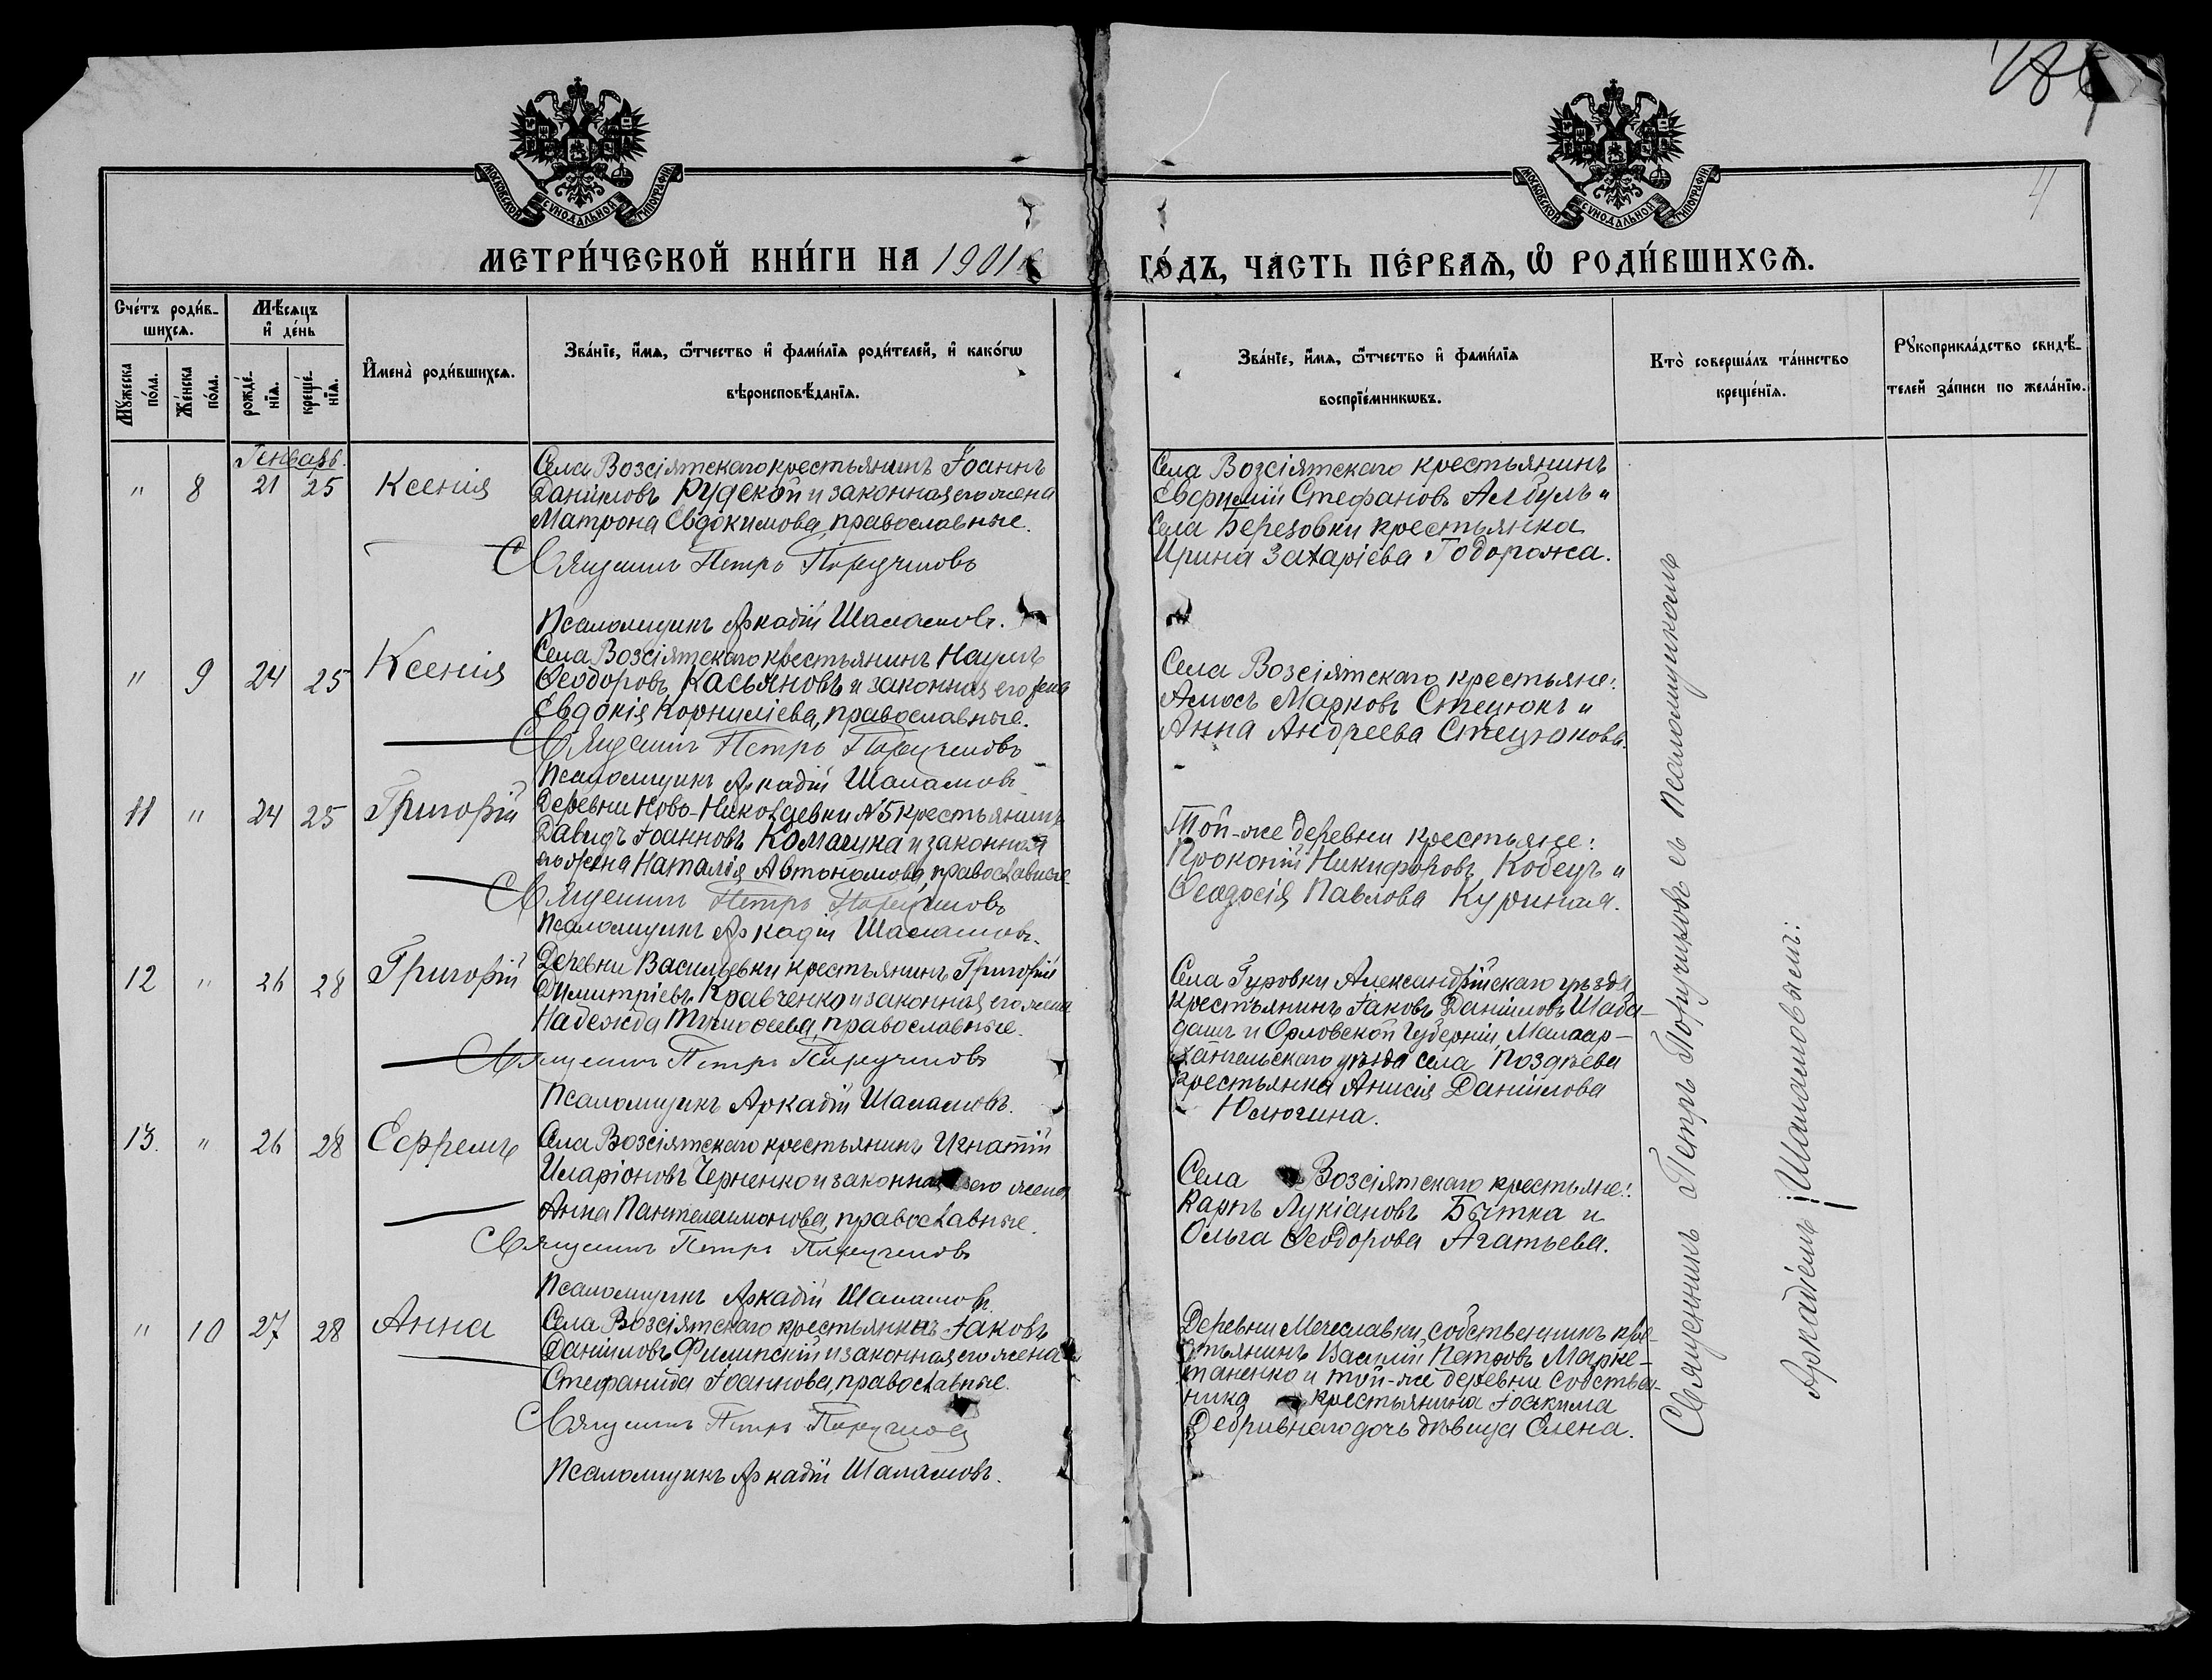 МОСКОВСКОЙ СѴНОДАЛЬНОЙ ТИПОГРАФІИ
МОСКОВСКОЙ СѴНОДАЛЬНОЙ ТИПОГРАФІИ
4
МЕТРИ́ЧЕСКОЙ КНИ́ГИ НА 1901
ГО́ДЪ, ЧА́СТЬ ПЕ́РВАѦ, Ѽ РОДИ́ВШИХСѦ.
Сче́тъ роди́в-
шихсѧ.
Мѣ́сяцъ
и҆ де́нь
Мꙋ́жеска
по́ла.
Же́нска
по́ла.
рожде́-
нїѧ.
креще́-
нїѧ.
И҆мена̀ роди́вшихсѧ.
Зва́нїе, и҆́мѧ, ѻ҆́тчество и҆ фами́лїѧ роди́телей, и҆ како́гѡ
вѣроисповѣ́данїѧ.
Зва́нїе, и҆́мѧ, ѻ҆́тчество и҆ фами́лїѧ
воспрїе́мникѡвъ.
Кто̀ соверша́лъ та́инство
креще́нїѧ.
Рꙋкоприкла́дство свидѣ́-
телей за́писи по жела́нїю.
Генварь.
" 8 21 25 Ксенія
Села Возсіятскаго крестьянинъ Іоаннъ
Даніиловъ Рудской и законная его жена
Матрона Евдокимова, православные.
Священникъ Петръ Поручиковъ
Псаломщикъ Аркадій Шаламовъ.
Села Возсіятскаго крестьянинъ
Евфимій Стефановъ Албулъ и
Села Березовки крестьянка
Ирина Захаріева Тодорожа.
" 9 24 25 Ксенія
Села Возсіятскаго крестьянинъ Наумъ
Ѳеодоровъ Касьяновъ и законная его жена
Евдокія Корниліева, православные.
Священникъ Петръ Поручиковъ
Псаломщикъ Аркадій Шаламовъ
Села Возсіятскаго крестьяне:
Амосъ Марковъ Стецюкъ и
Анна Андреева Стецюкова.
11 " 24 25 Григорій
Деревни Ново-Николаевки № 5 крестьянинъ
Давидъ Іоанновъ Комашка и законная
его жена Наталія Автономова, православные
Священникъ Петръ Поручиковъ
Псаломщикъ Аркадій Шаламовъ.
Той-же деревни крестьяне:
Прокопій Никифоровъ Кобецъ и
Ѳеодосія Павлова Куриная.
12 " 26 28 Григорій
Деревни Васильевки крестьянинъ Григорій
Димитріевъ Кравченко и законная его жена
Надежда Тимоѳеева, православные.
Священникъ Петръ Поручиковъ
Псаломщикъ Аркадій Шаламовъ.
Села Гуровки Александрійскаго уѣзда,
крестьянинъ Іаковъ Даніиловъ Шаба-
дашъ и Орловской губерніи, Малоар-
хангельскаго уѣзда села Поздѣева
крестьянка Анисія Даніилова
Илюшина.
13. " 26 28 Ефремъ
Села Возсіятскаго крестьянинъ Игнатій
Иларіоновъ Черненко и законная его жена
Анна Пантелеимонова, православные.
Священникъ Петръ Поручиковъ
Псаломщикъ Аркадій Шаламовъ.
Села Возсіятскаго крестьяне:
Карпъ Лукіановъ Бытка и
Ольга Ѳеодорова Агатьева.
" 10 27 28 Анна
Села Возсіятскаго крестьянинъ Іаковъ
Даніиловъ Филипскій и законная его жена
Стефанида Іоаннова, православные.
Священникъ Петръ Поручиковъ
Псаломщикъ Аркадій Шаламовъ.
Деревни Мечеславки, собственникъ кре-
стьянинъ Василій Петровъ Марке-
таненко и той-же деревни собствен-
ника крестьянина Іоакима
Дебривнаго дочь дѣвица Елена.
Священникъ Петръ Поручиковъ съ Псаломщикомъ
Аркадіемъ Шаламовымъ: